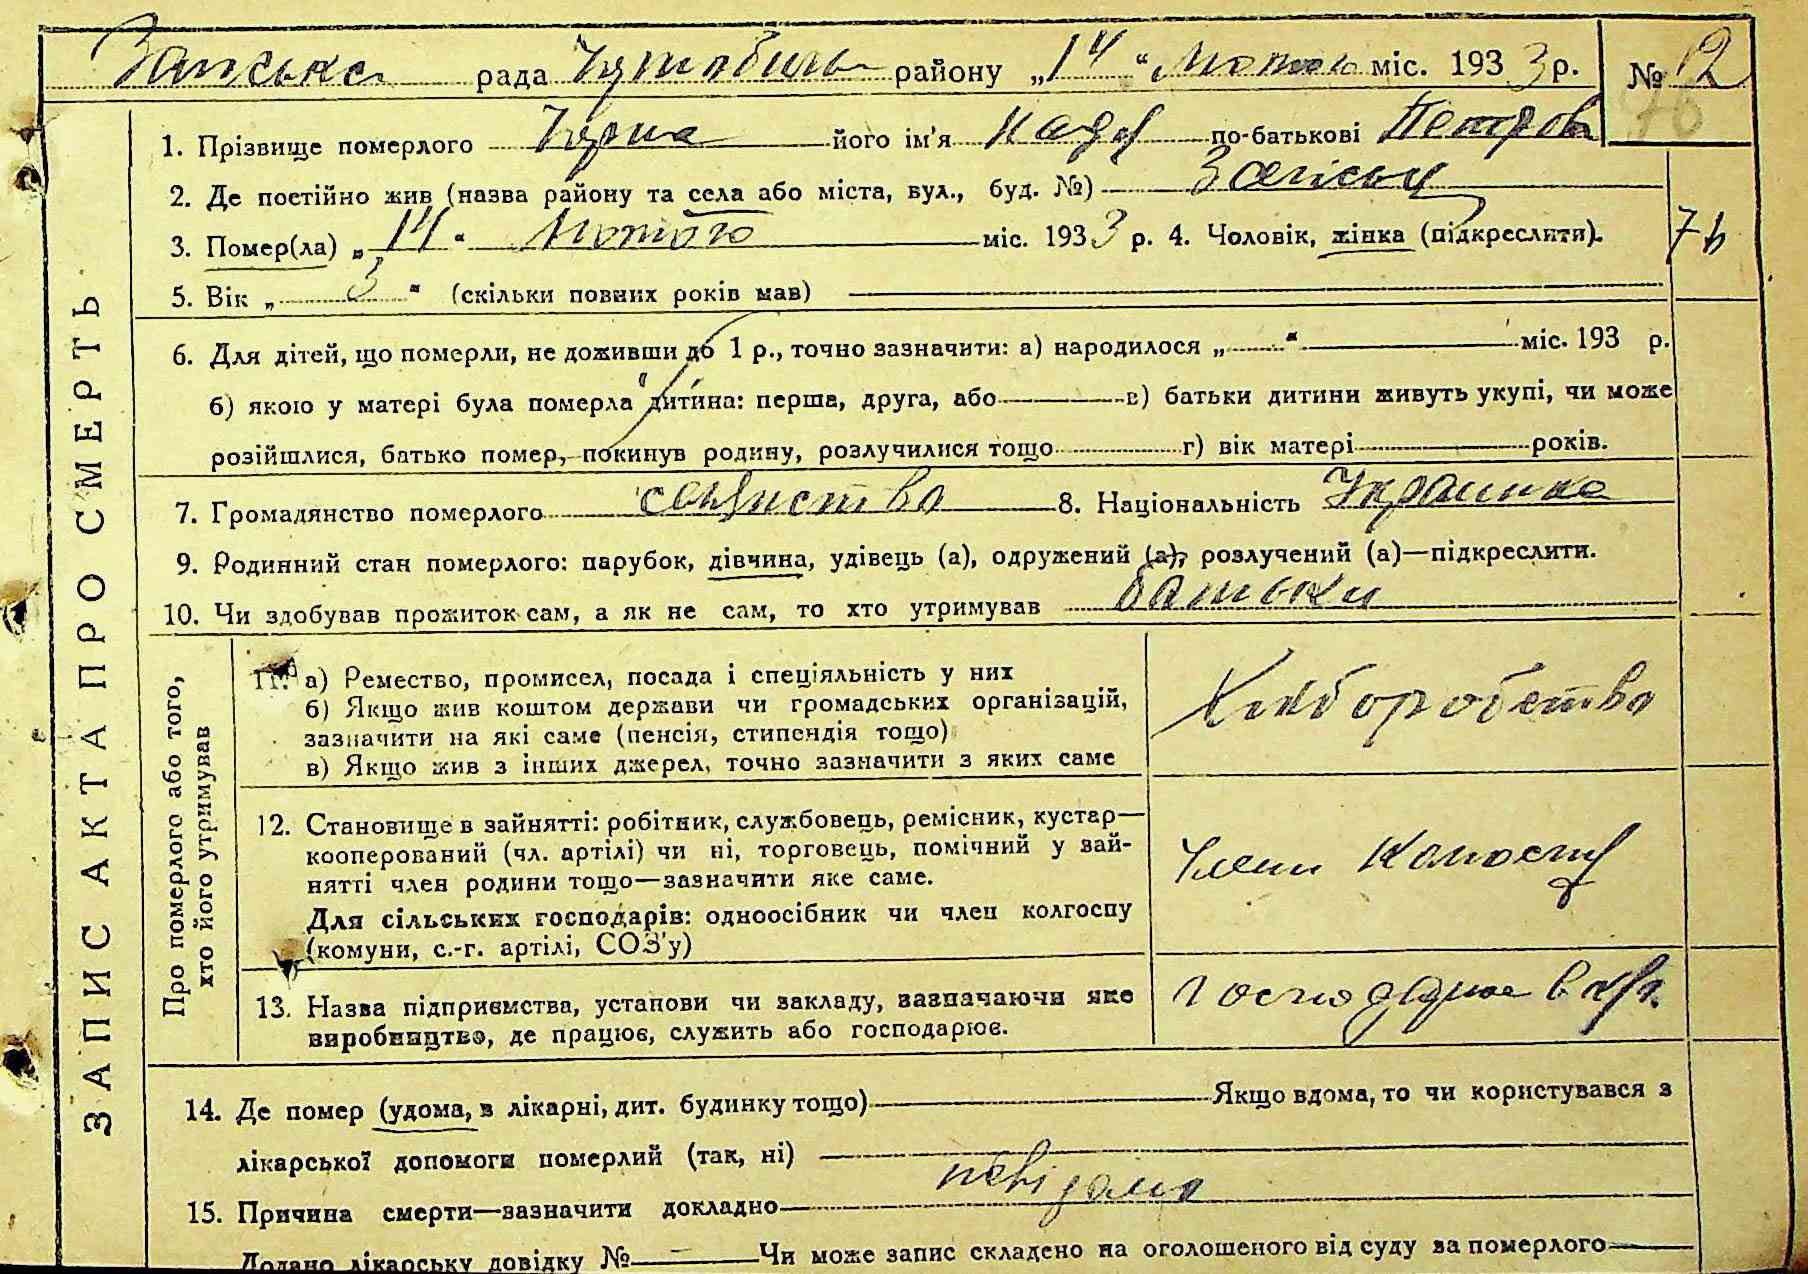 рада району „14" Лютого міс. 1933 р. № 12
76
ЗАПИС АКТА ПРО СМЕРТЬ
1. Прізвище померлого його ім'я Надя по-батькові Петров
2. Де постійно жив (назва району та села або міста, вул., буд. №)
3. Помер(ла) „14" Лютого міс. 1933 р. 4. Чоловік, жінка (підкреслити).
5. Вік „3" (скільки повних років мав)
6. Для дітей, що померли, не доживши до 1 р., точно зазначити: а) народилося „ " міс. 193 р.
б) якою у матері була померла дитина: перша, друга, або в) батьки дитини живуть укупі, чи може
розійшлися, батько помер, покинув родину, розлучилися тощо г) вік матері років.
7. Громадянство померлого 8. Національність Українка
9. Родинний стан померлого: парубок, дівчина, удівець (а), одружений (а), розлучений (а)—підкреслити.
10. Чи здобував прожиток сам, а як не сам, то хто утримував батьки
Про померлого або того,
хто його утримував
11. а) Ремество, промисел, посада і спеціяльність у них
б) Якщо жив коштом держави чи громадських організацій,
зазначити на які саме (пенсія, стипендія тощо)
в) Якщо жив з інших джерел, точно зазначити з яких саме
Хліборобство
12. Становище в зайнятті: робітник, службовець, ремісник, кустар—
кооперований (чл. артілі) чи ні, торговець, помічний у зай-
нятті член родини тощо—зазначити яке саме.
Для сільських господарів: одноосібник чи член колгоспу
(комуни, с.-г. артілі, СОЗ'у)
Член Колгоспу
13. Назва підприємства, установи чи закладу, зазначаючи яке
виробництво, де працює, служить або господарює.
14. Де помер (удома, в лікарні, дит. будинку тощо) Якщо вдома, то чи користувався з
лікарської допомоги померлий (так, ні)
15. Причина смерти—зазначити докладно невідома
Додано лікарську довідку № — Чи може запис складено на оголошеного від суду за померлого